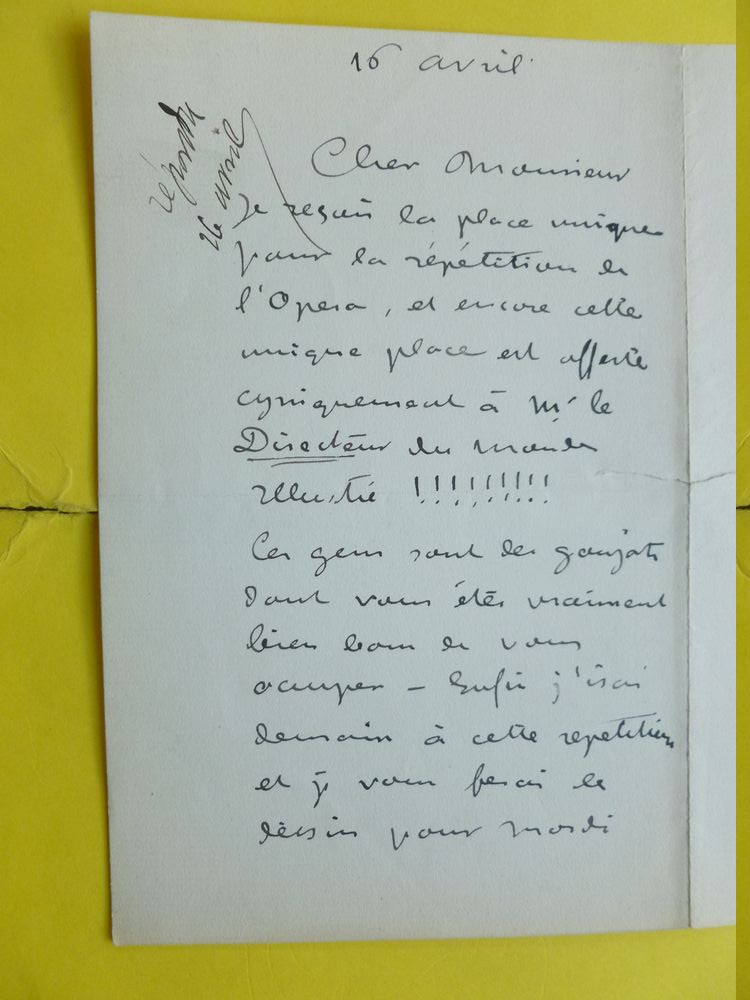 16 avril
répondu
26 avril
Cher Monsieur
Je reçois la place unique
pour la répétition de
l'Opera, et encore cette
unique place est offerte
cyniquement à Mr le
Directeur du monde
illustré !!!!!!!!!
Ces gens sont des goujats
dont vous êtes vraiment
bien bon de vous
occuper — Enfin j'irai
demain à cette repetition
et je vous ferai le
dessin pour mardi